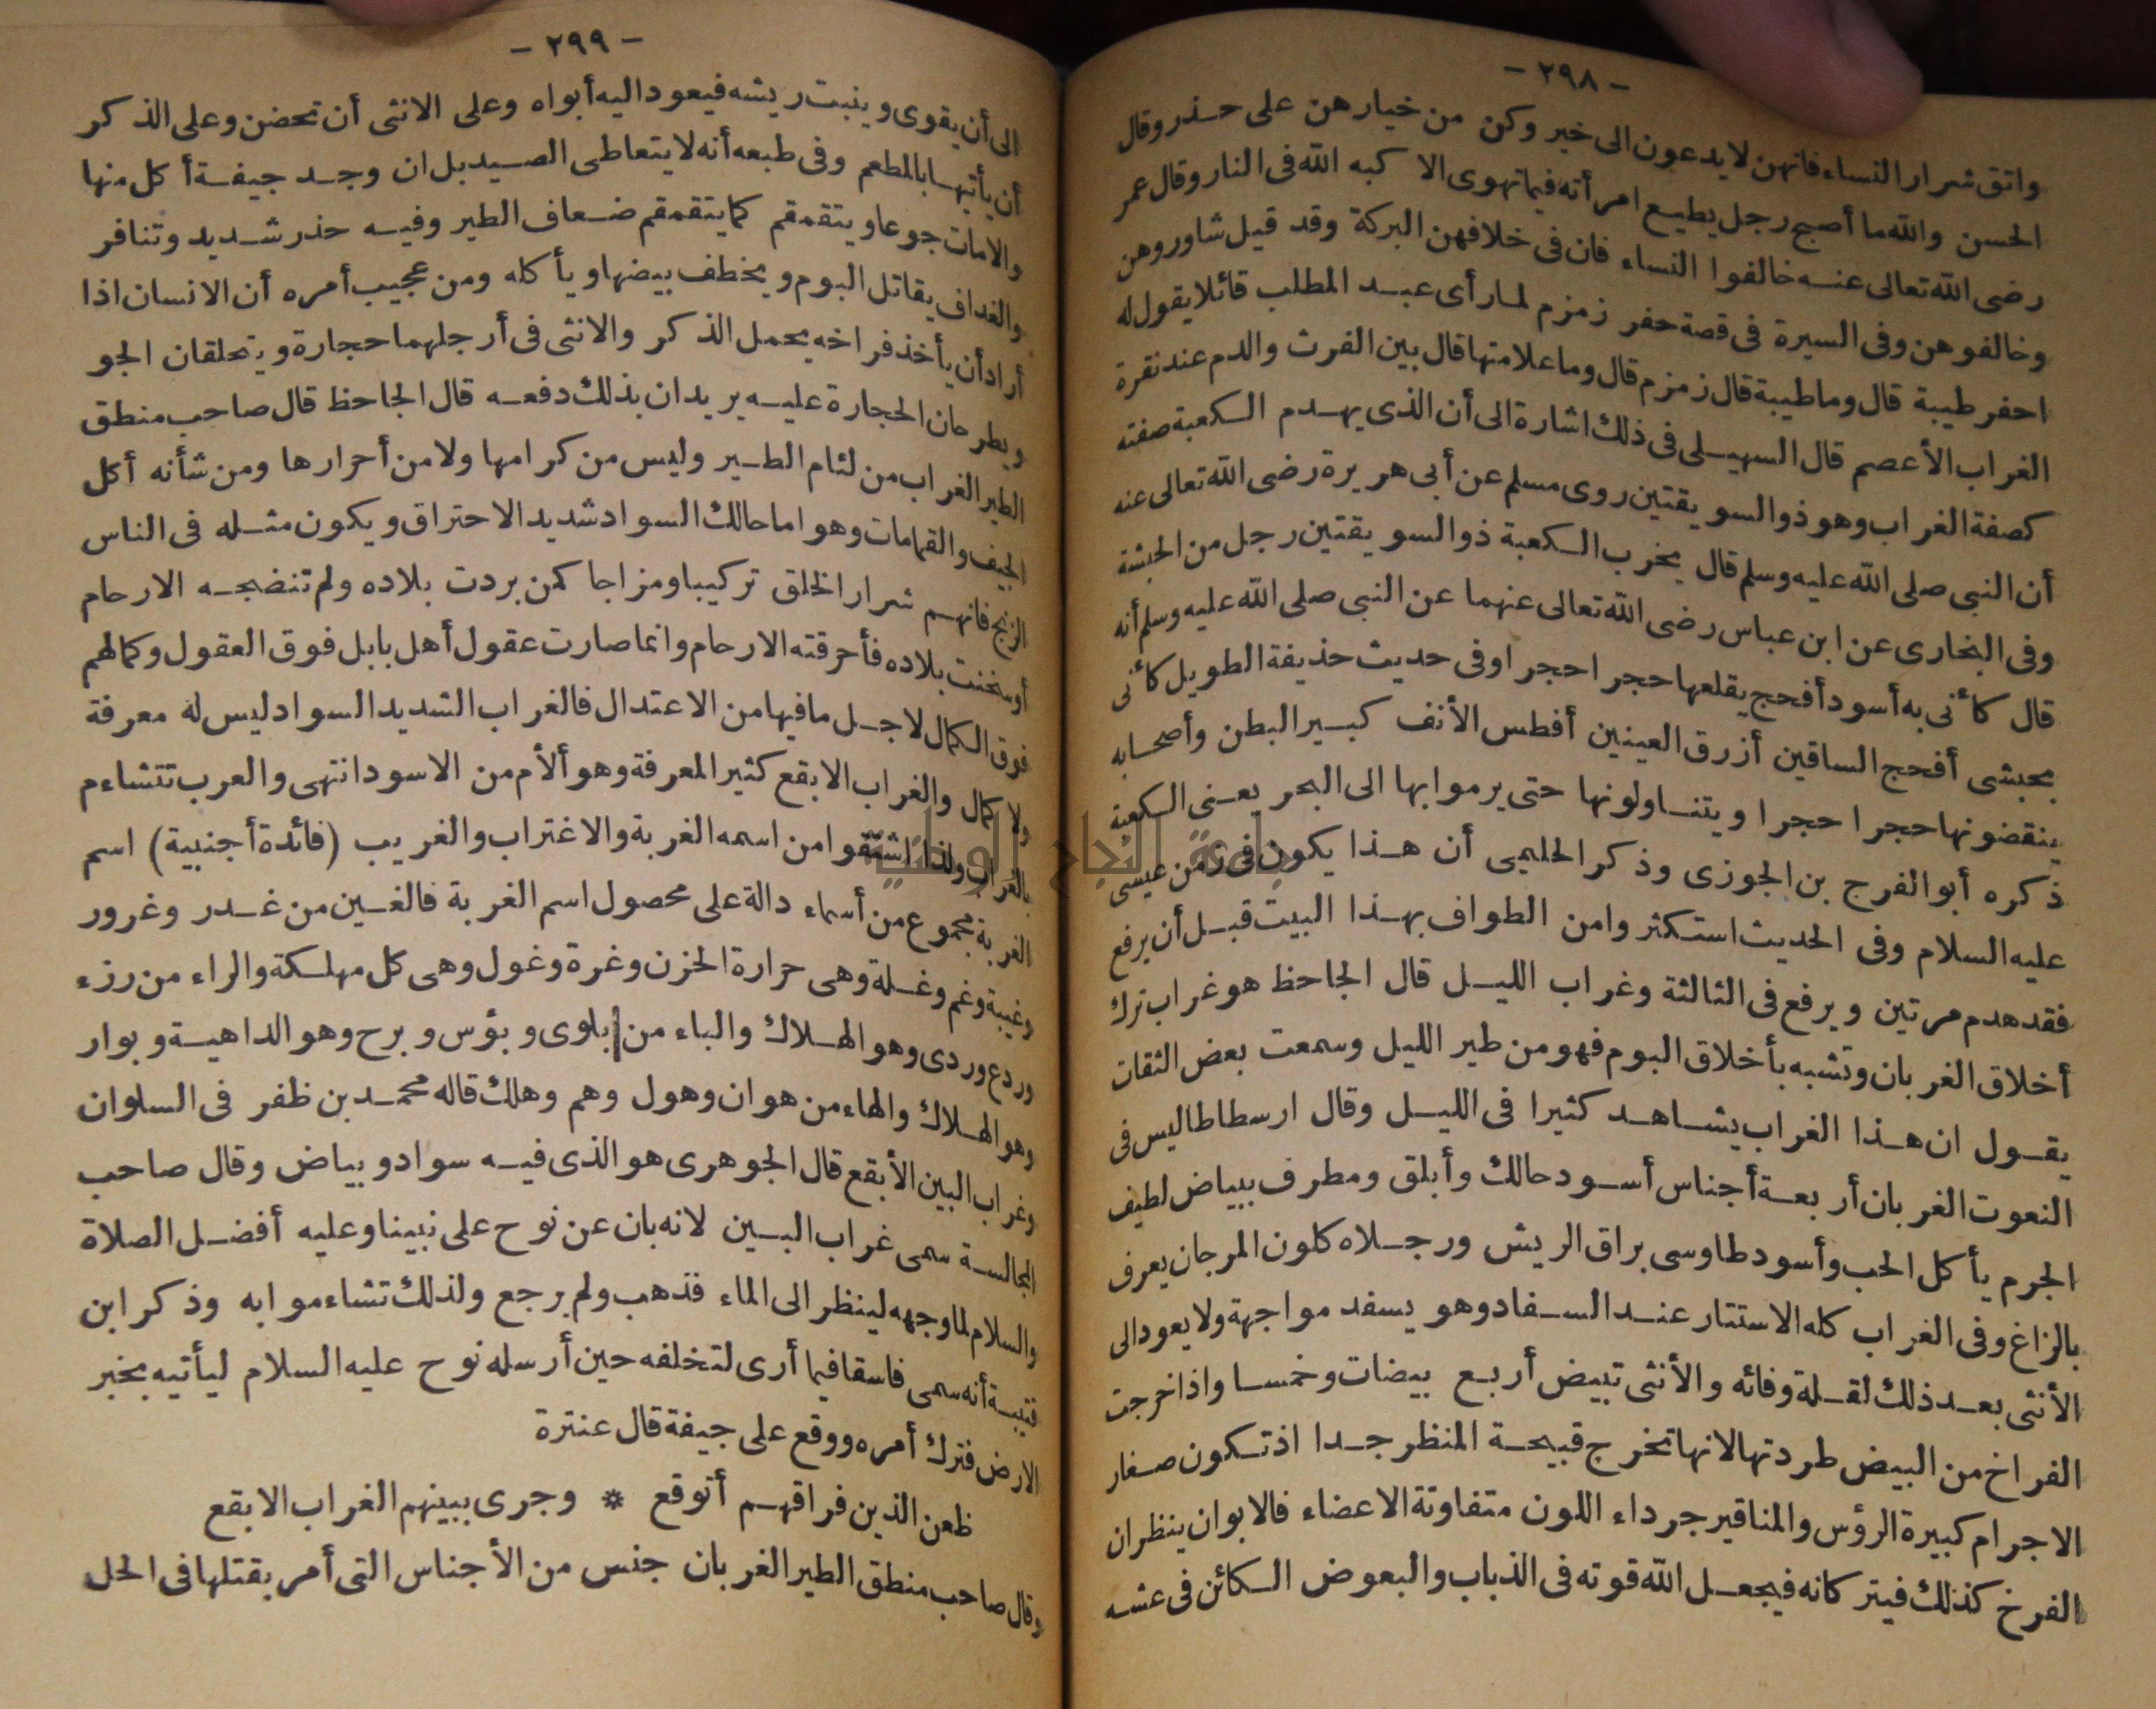 - ٢٩٨ -
واتق شرار النساء فانهن لا يدعون الى خير وكن من خيارهن على حذر وقال
الحسن والله ما أصبح رجل يطيع امرأته فيما تهوى الا كبه الله فى النار وقال عمر
رضى الله تعالى عنه خالفوا النساء فان فى خلافهن البركة وقد قيل شاوروهن
وخالفوهن وفى السيرة فى قصة حفر زمزم لما رأى عبد المطلب قائلا يقول له
احفر طيبة قال وما طيبة قال زمزم قال وما علامتها قال بين الفرث والدم عند نقرة
الغراب الأعصم قال السهيلى فى ذلك اشارة الى أن الذى يهدم الكعبة صفته
كصفة الغراب وهو ذو السويقتين روى مسلم عن أبى هريرة رضى الله تعالى عنه
أن النبى صلى الله عليه وسلم قال يخرب الكعبة ذو السويقتين رجل من الحبشة
وفى البخارى عن ابن عباس رضى الله تعالى عنهما عن النبى صلى الله عليه وسلم أنه
قال كأنى به أسود أفحج يقلعها حجرا حجرا وفى حديث حذيفة الطويل كأنى
بحبشى أفحج الساقين أزرق العينين أفطس الأنف كبير البطن وأصحابه
ينقضونها حجرا حجرا ويتناولونها حتى يرموا بها الى البحر يعنى الكعبة
ذكره أبو الفرج بن الجوزى وذكر الحليمى أن هذا يكون فى زمن عيسى
عليه السلام وفى الحديث استكثروا من الطواف بهذا البيت قبل أن يرفع
فقد هدم مرتين ويرفع فى الثالثة وغراب الليل قال الجاحظ هو غراب ترك
أخلاق الغربان وتشبه بأخلاق البوم فهو من طير الليل وسمعت بعض الثقات
يقول ان هذا الغراب يشاهد كثيرا فى الليل وقال ارسطاطاليس فى
النعوت الغربان أربعة أجناس أسود حالك وأبلق ومطرف ببياض لطيف
الجرم يأكل الحب وأسود طاوسى براق الريش ورجلاه كلون المرجان يعرف
بالزاغ وفى الغراب كله الاستتار عند السفاد وهو يسفد مواجهة ولا يعود الى
الأنثى بعد ذلك لقلة وفائه والأنثى تبيض أربع بيضات وخمسا واذا خرجت
الفراخ من البيض طردتها لانها تخرج قبيحة المنظر جدا اذ تكون صغار
الاجرام كبيرة الرؤس والمناقير جرداء اللون متفاوتة الاعضاء فالابوان ينظران
الفرخ كذلك فيتركانه فيجعل الله قوته فى الذباب والبعوض الكائن فى عشه
- ٢٩٩ -
الى أن يقوى وينبت ريشه فيعود اليه أبواه وعلى الانثى أن تحضن وعلى الذكر
أن يأتيها بالمطعم وفى طبعه أنه لا يتعاطى الصيد بل ان وجد جيفة أكل منها
والا مات جوعا ويتقمقم كما يتقمقم ضعاف الطير وفيه حذر شديد وتنافر
والغداف يقاتل البوم ويخطف بيضها ويأكله ومن عجيب أمره أن الانسان اذا
أراد أن يأخذ فراخه يحمل الذكر والانثى فى أرجلهما حجارة ويتحلقان الجو
ويطرحان الحجارة عليه يريدان بذلك دفعه قال الجاحظ قال صاحب منطق
الطير الغراب من لئام الطير وليس من كرامها ولا من أحرارها ومن شأنه أكل
الجيف والقمامات وهو اما حالك السواد شديد الاحتراق ويكون مثله فى الناس
الزنج فانهم شرار الخلق تركيبا ومزاجا كمن بردت بلاده ولم تنضجه الارحام
أو سخنت بلاده فأحرقته الارحام وانما صارت عقول أهل بابل فوق العقول وكمالهم
فوق الكمال لاجل ما فيها من الاعتدال فالغراب الشديد السواد ليس له معرفة
ولا كمال والغراب الابقع كثير المعرفة وهو ألأم من الاسود انتهى والعرب تتشاءم
بالغراب ولذا اشتقوا من اسمه الغربة والاغتراب والغريب (فائدة أجنبية) اسم
الغربة مجموع من أسماء دالة على محصول اسم الغربة فالغين من غدر وغرور
وغيبة وغم وغلة وهى حرارة الحزن وغرة وغول وهى كل مهلكة والراء من رزء
وردع وردى وهو الهلاك والباء من بلوى وبؤس وبرح وهو الداهية وبوار
وهو الهلاك والهاء من هوان وهول وهم وهلك قاله محمد بن ظفر فى السلوان
وغراب البين الأبقع قال الجوهرى هو الذى فيه سواد وبياض وقال صاحب
المجالسة سمى غراب البين لانه بان عن نوح على نبينا وعليه أفضل الصلاة
والسلام لما وجهه لينظر الى الماء فذهب ولم يرجع ولذلك تشاءموا به وذكر ابن
قتيبة أنه سمى فاسقا فيما أرى لتخلفه حين أرسله نوح عليه السلام ليأتيه بخبر
الارض فترك أمره ووقع على جيفة قال عنترة
ظعن الذين فراقهم أتوقع * وجرى ببينهم الغراب الابقع
وقال صاحب منطق الطير الغربان جنس من الأجناس التى أمر بقتلها فى الحل
جامعة النجاح الوطنية